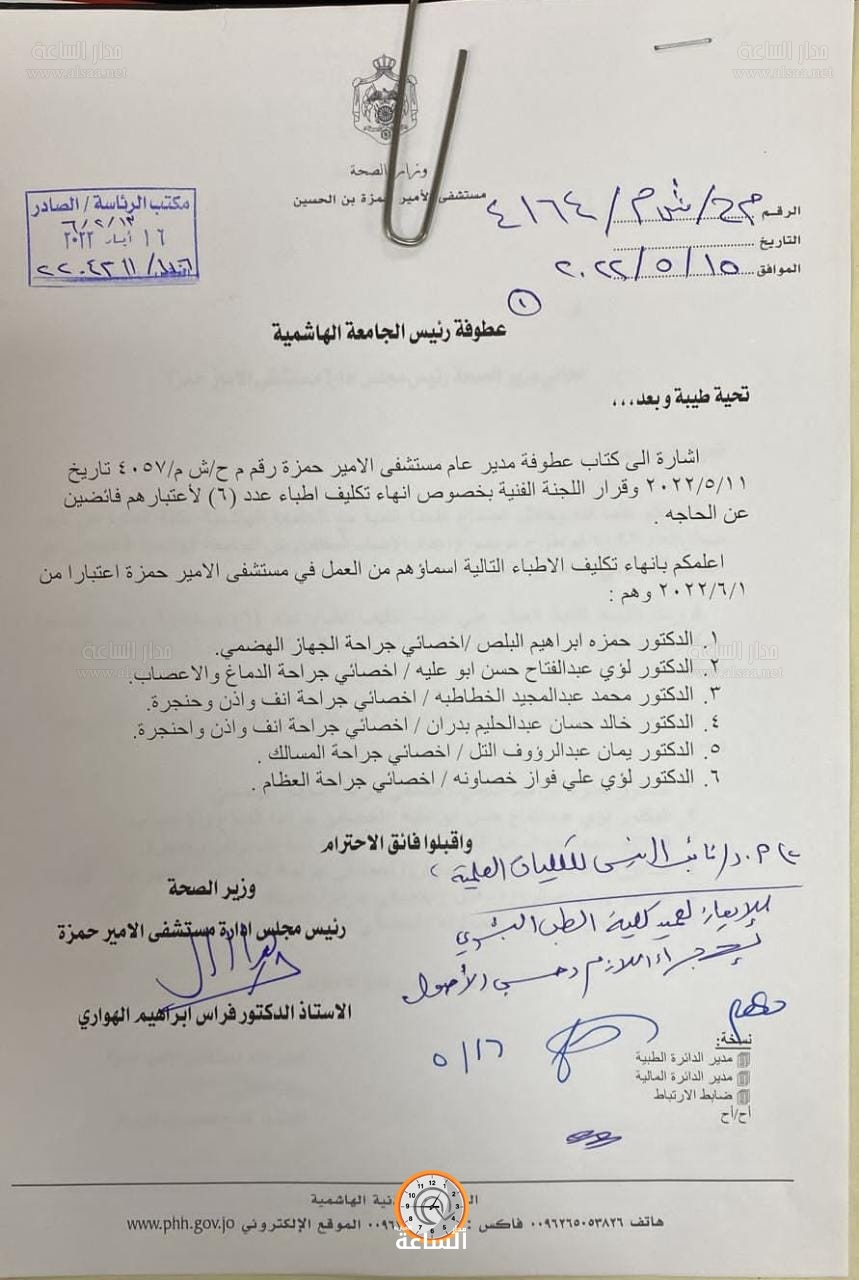 مدار الساعة
www.alsaa.net
مدار الساعة
www.alsaa.net
وزارة الصحة
مستشفى الأمير حمزة بن الحسين
مكتب الرئاسة / الصادر
١٦ أيار ٢٠٢٢
الرقم م ح/ش م/٤١٦٤
التاريخ
الموافق ٢٠٢٢/٥/١٥
١
عطوفة رئيس الجامعة الهاشمية
تحية طيبة وبعد...
اشارة الى كتاب عطوفة مدير عام مستشفى الامير حمزة رقم م ح/ش م/٤٠٥٧ تاريخ
٢٠٢٢/٥/١١ وقرار اللجنة الفنية بخصوص انهاء تكليف اطباء عدد (٦) لأعتبارهم فائضين
عن الحاجه .
اعلمكم بانهاء تكليف الاطباء التالية اسماؤهم من العمل في مستشفى الامير حمزة اعتبارا من
٢٠٢٢/٦/١ وهم :
١. الدكتور حمزه ابراهيم البلص /اخصائي جراحة الجهاز الهضمي.
٢. الدكتور لؤي عبدالفتاح حسن ابو عليه / اخصائي جراحة الدماغ والاعصاب.
٣. الدكتور محمد عبدالمجيد الخطاطبه / اخصائي جراحة انف واذن وحنجرة.
٤. الدكتور خالد حسان عبدالحليم بدران / اخصائي جراحة انف واذن واحنجرة.
٥. الدكتور يمان عبدالرؤوف التل / اخصائي جراحة المسالك .
٦. الدكتور لؤي علي فواز خصاونه / اخصائي جراحة العظام .
مدار الساعة
www.alsaa.net
مدار الساعة
www.alsaa.net
واقبلوا فائق الاحترام
وزير الصحة
رئيس مجلس ادارة مستشفى الامير حمزة
الاستاذ الدكتور فراس ابراهيم الهواري
نائب الرئيس للكليات العلمية
للإيعاز لعميد كلية الطب البشري
لإجراء اللازم وحسب الأصول
٥/١٦
نسخة:
مدير الدائرة الطبية
مدير الدائرة المالية
ضابط الارتباط
أح/أح
الهاشمية
هاتف ٠٠٩٦٢٦٥٠٥٣٨٢٦ فاكس : الموقع الإلكتروني www.phh.gov.jo
مدار
الساعة